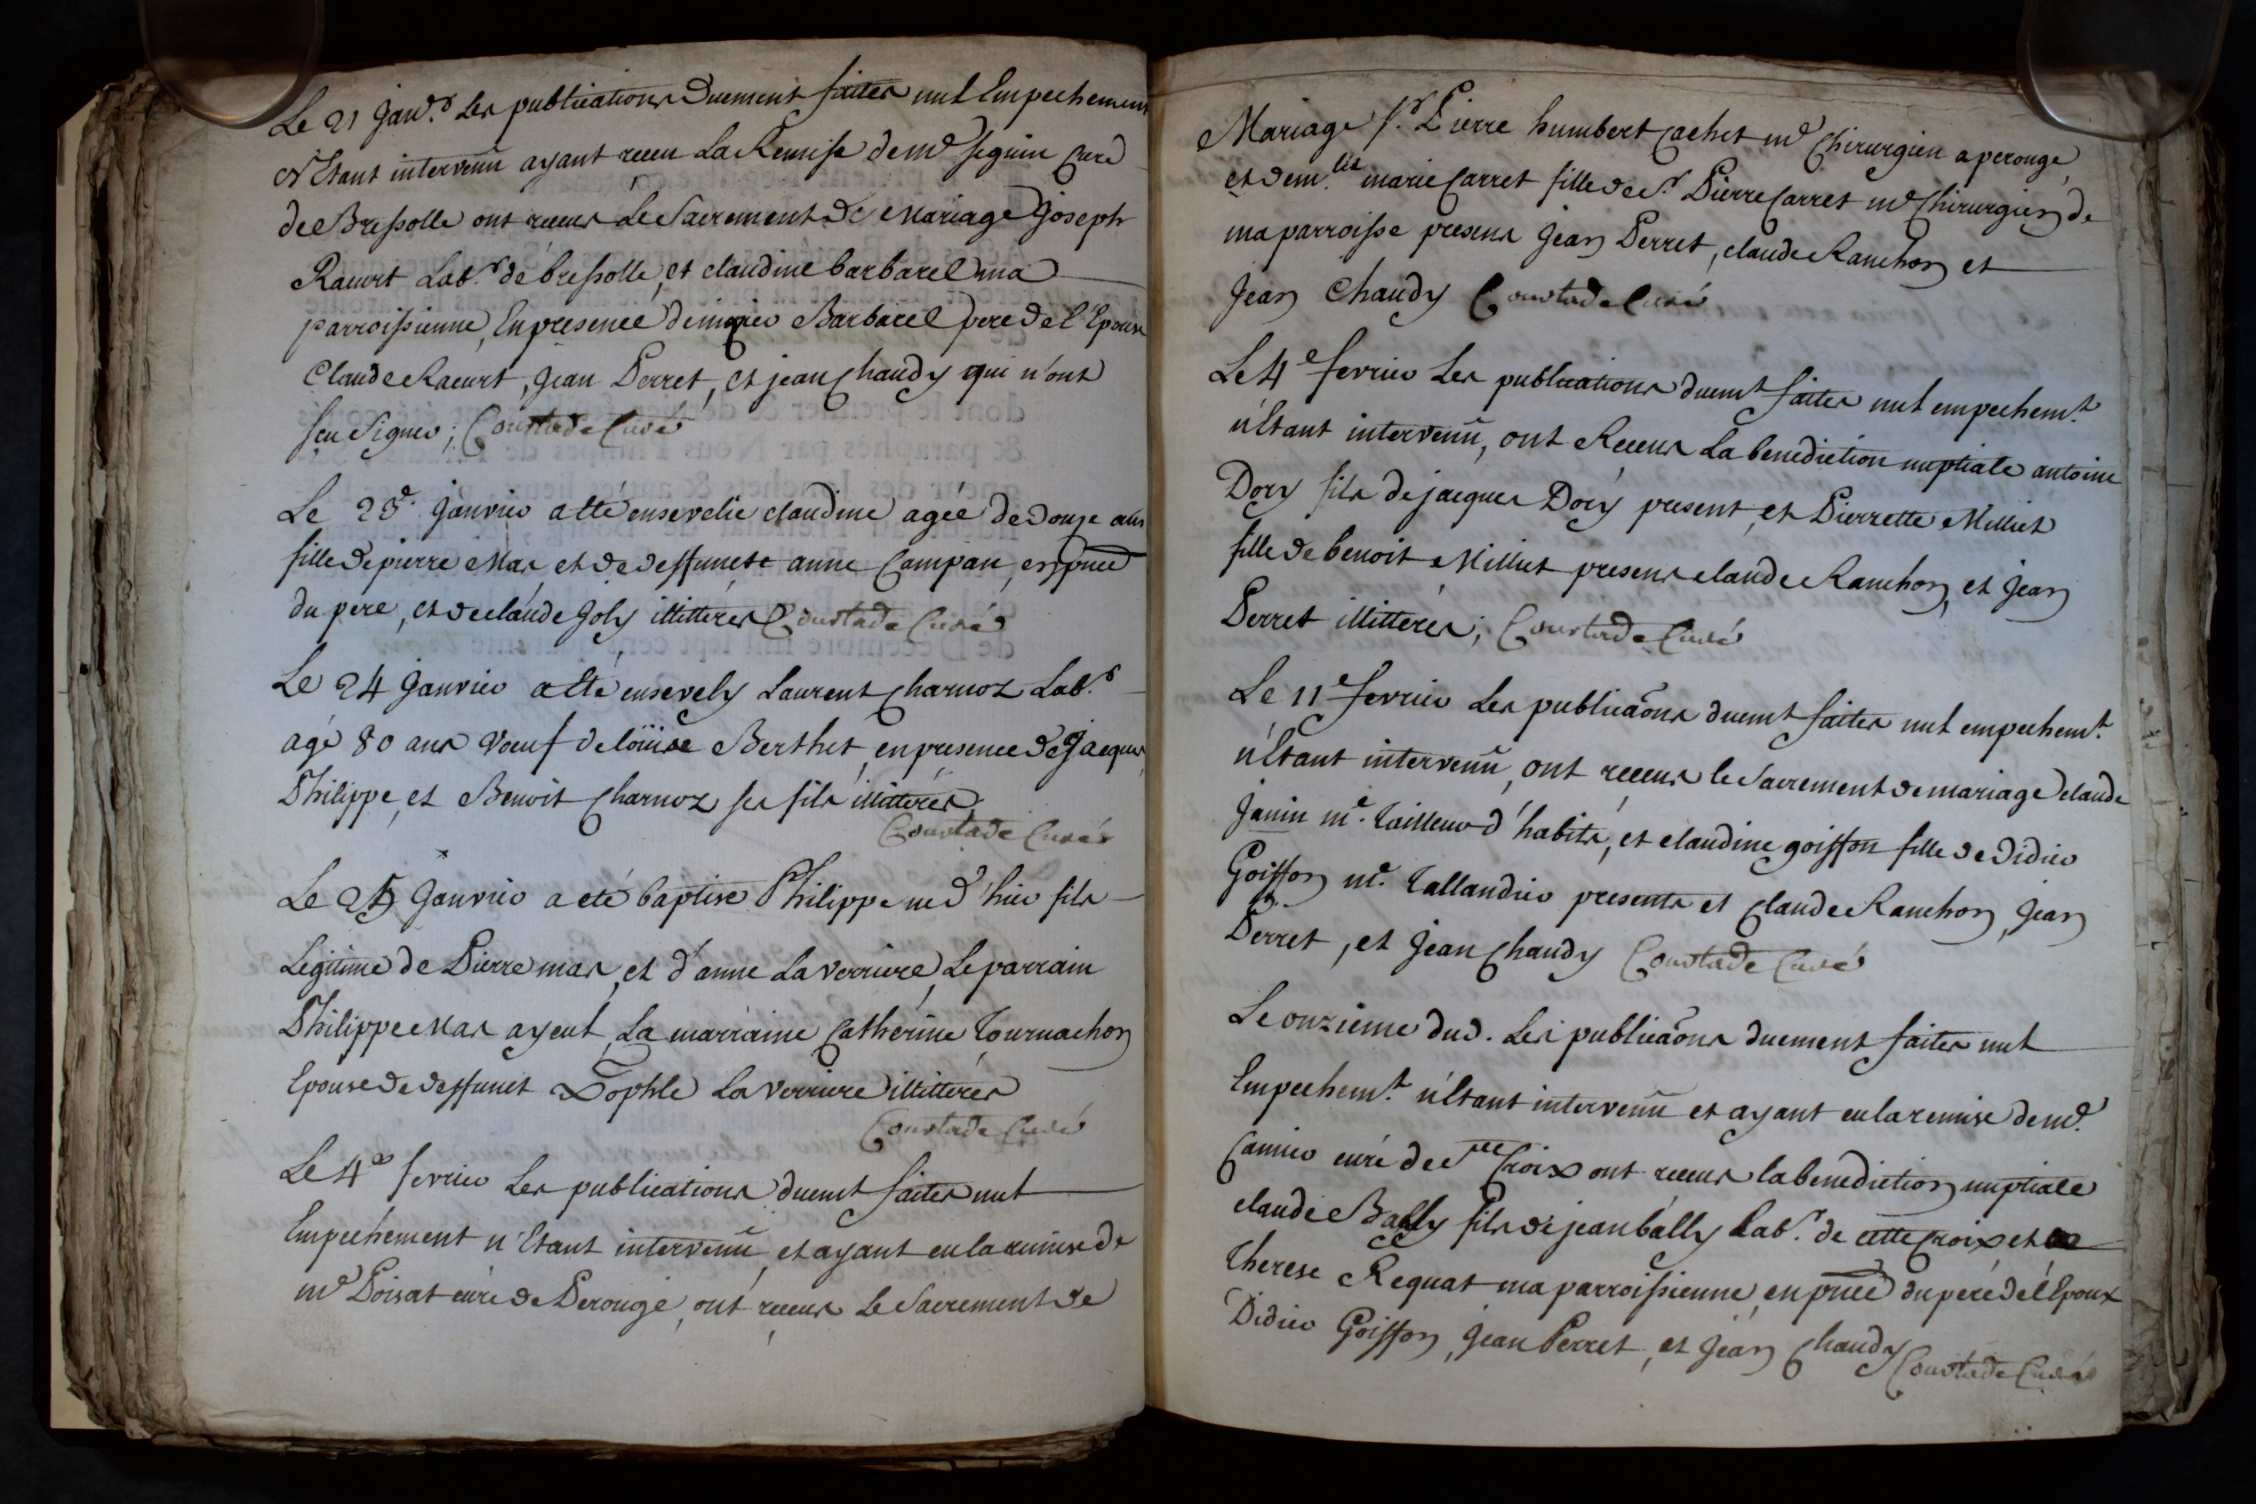 Le 21 Janv.r Les publications Duement faites nul Empechement
N'Etant intervenü ayant receu La Remise de mr seguin Curé
de Bressolle ont receus Le Sacrement de Mariage Joseph
Racurt Lab.r de bressolle, et claudine barbarel ma
parroissienne, En presence de Barbarel pere de l'Epouse
Claude Racurt, Jean Perret, et jean Chaudy qui n'ont
sçu signer; Coustade Curé
Le 23e Janvier a été ensevelie claudine agée de douze ans
fille de pierre Mas et de deffuncte anne Campan, en pnce
du pere, et de claude Joly illitterés Coustade Curé
Le 24 Janvier a été ensevely Laurent Charnoz Lab.r
agé 80 ans voeuf de loüise Berthet en presence de Jacques
Philippe, et Benoit Charnoz ses fils illitterés
Coustade Curé
Le 25 Janvier a eté baptisé Philippe né d'hier fils
Legitime de Pierre mas, et d'anne La verriere, Le parrain
Philippe Mas ayeul, La marraine Catherine Tournachon
Epouse de deffunct La verriere illitterés
Coustade Curé
Le 4e fevrier Les publications duemt faites nul
Empechement n'Etant intervenü, et ayant eu la remise de
mr Poisat curé de Perouge, ont receus Le Sacrement de
Mariage sr. Pierre humbert Cachet me Chirurgien a perouge,
et dem.lle marie Carret fille de sr Pierre Carret me Chirurgien de
ma parroisse presens Jean Perret, claude Ranchon et
Jean Chaudy Coustade Curé
Le 4e fevrier Les publications duemt faites nul empechemt
n'Etant intervenü, ont Receus La benediction nuptiale antoine
Dory fils de jacques Dory present, et Pierrette Milliet
fille de benoit Milliet presens claude Ranchon, et Jean
Perret illitterés; Coustade Curé
Le 11e fevrier Les publicaõns duemt faites nul empechemt.
n'Etant intervenü, ont receus le Sacrement de mariage claude
Janin me. Tailleur d'habits, et claudine goiffon fille de Didier
Goiffon me. Tallandier presents et Claude Ranchon, Jean
Perret, et Jean Chaudy Coustade Curé
Le onzieme dud. Les publicaõns duement faites nul
Empechemt. n'Etant intervenü et ayant eu la remise de mr.
Camier curé de ste Croix ont receus la benediction nuptiale
claude Bally fils de jean bally Lab.r de cette Croix et
Therese Requat ma parroissienne, en pnce du pere de l'Epoux
Didier Goiffon, Jean Perret, et Jean Chaudy Coustade Curé